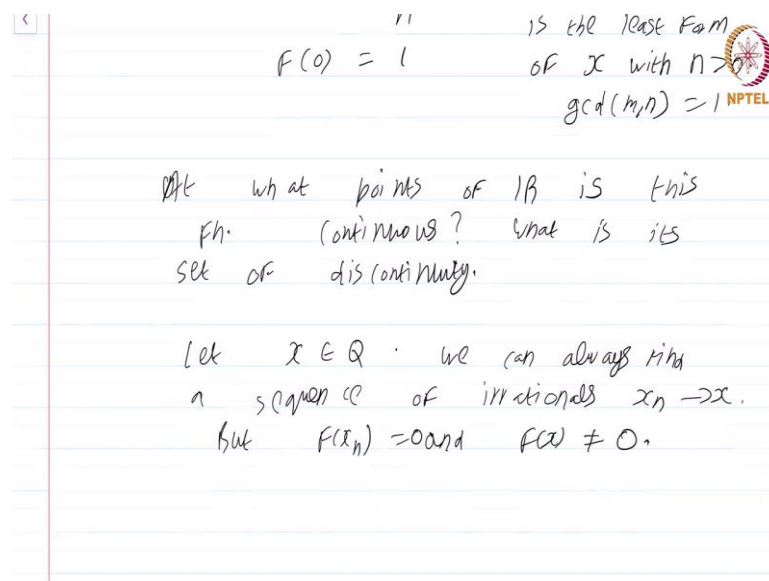 n is the least form
F(0) = 1 of x with n>0
gcd(m,n) = 1
NPTEL
At what points of IR is this
Fn. continuous? What is its
set of discontinuity.
Let x ∈ Q. we can always find
a sequence of irrationals xₙ → x.
But F(xₙ) = 0 and F(x) ≠ 0.